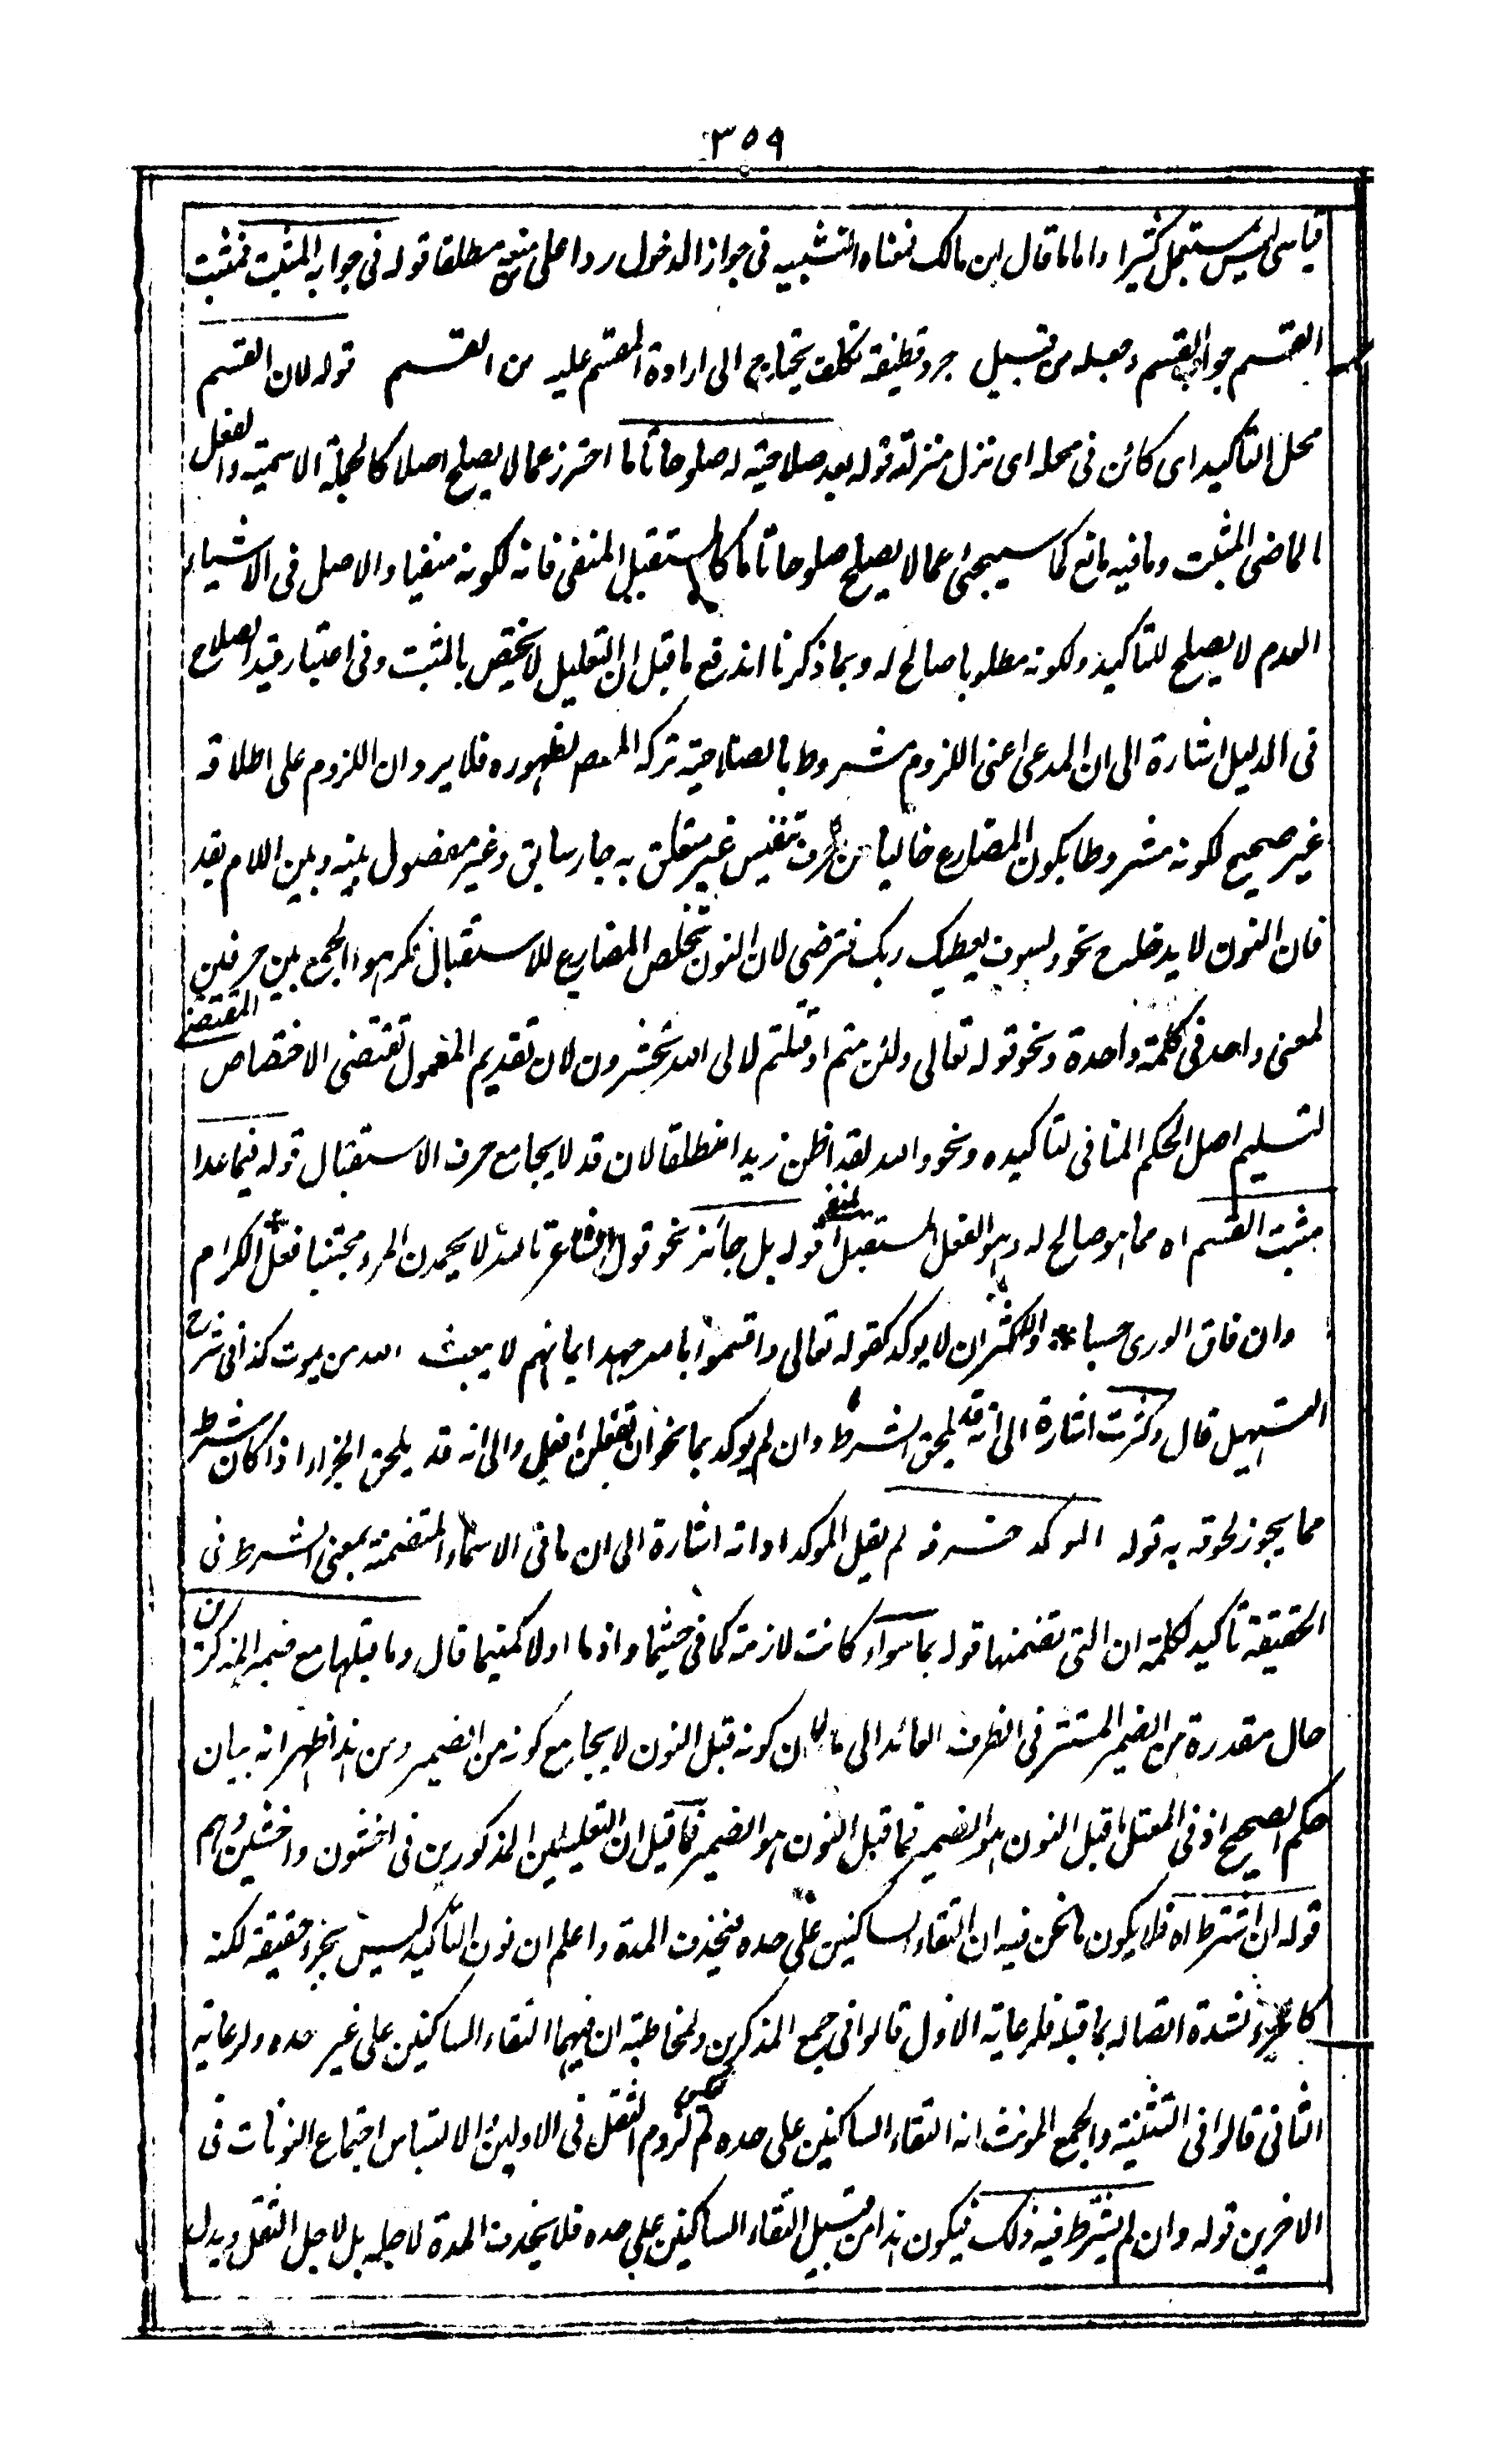 ٣٥٩
قياسى ليس مستعمل كثيرا واما ما قال ابن مالك فمعناه التشبيه فى جواز الدخول ردا على منعه مطلقا قوله فى جوابه المثبت فمثبت
القسم جواب القسم وجعله من قبيل جرد قطيفة تكلف يحتاج الى ارادة المقسم عليه من القسم قوله لان القسم
محل التاكيد اى كائن فى محله اى تزل منزلته قوله بعد صلاحيته له صلوحا تاما احترز عما لا يصلح اصلا كالجملة الاسمية والفعل
الماضى المثبت وما فيه مانع كما سيجئ عما لا يصلح صلوحا تاما كالمستقبل المنفى فانه لكونه منفيا والاصل فى الاشياء
العدم لا يصلح للتاكيد ولكونه مطلوبا صالح له وبما ذكرنا اندفع ما قيل ان التعليل لا يختص بالمثبت وفى اعتبار قيد الصلاح
فى الدليل اشارة الى ان المدعى اعنى اللزوم مشروط بالصلاحية تركه المصم لظهوره فلا يرد ان اللزوم على اطلاقه
غير صحيح لكونه مشروطا بكون المضارع خاليا من حرف تنفيس غير متعلق به جار سابق وغير مفصول بينه وبين اللام بقد
فان النون لا يدخل نحو ولسوف يعطيك ربك فترضى لان النون تخلص المضارع للاستقبال فكرهوا الجمع بين حرفين
لمعنى واحد فى كلمة واحدة ونحو قوله تعالى ولئن متم او قتلتم لالى الله تحشرون لان تقديم المعمول تقتضى الاختصاص المقتضى
لتسليم اصل الحكم المنافى لتاكيده ونحو والله لقد اظن زيدا منطلقا لان قد لا يجامع حرف الاستقبال قوله فيما عدا
مثبت القسم اه مما هو صالح له وهو الفعل المستقبل المنفى قوله بل جائز نحو قول الشاعر تالله لا يحمدن المرء مجتنبا فعل الكرام
وان فاق الورى حسبا * والاكثر ان لا يوكد كقوله تعالى واقسموا بالله جهد ايمانهم لا يبعث الله من يموت كذا فى شرح
التسهيل قال وكثرت اشارة الى انه قد يلحق الشرط وان لم يوكد بما نحو ان تفعلن افعل والى انه قد يلحق الجزاء اذا كان شرطه
مما يجوز لحوقه به قوله الموكد حرفه لم يقل الموكد اداته اشارة الى ان ما فى الاسماء المتضمنة بمعنى الشرط فى
الحقيقة تاكيد لكلمة ان التى تضمنها قوله بما سواء كانت لازمة كما فى حيثما واذما اولا كمتيما قال وما قبلها مع ضمير المذكرين
حال مقدرة من الضمير المستتر فى الظرف العائد الى ما لان كونه قبل النون لا يجامع كونه من الضمير ومن هذا ظهر انه بيان
حكم الصحيح اذ فى المعتل ما قبل النون هو الضمير فما قبل النون هو الضمير فما قيل ان التعليلين المذكورين فى اخشون واخشين وهم
قوله ان اشترط اه فلا يكون ما نحن فيه ان التقاء الساكنين على حده فيحذف المدة واعلم ان نون التاكيد ليس بجزء حقيقة لكنه
كالجزء لشدة اتصاله بما قبله فلرعاية الاول قالوا فى جمع المذكرين والمخاطبة ان فيهما التقاء الساكنين على غير حده ولرعاية
الثانى قالوا فى التثنية والجمع المونث انه التقاء الساكنين على حده لم يعكس للزوم الثقل فى الاولين والالتباس اجتماع النونات فى
الاخرين قوله وان لم يشترط فيه ذلك فيكون هذا من قبيل التقاء الساكنين على حده فلا يحذف المدة لاجله بل لاجل الثقل ويدل